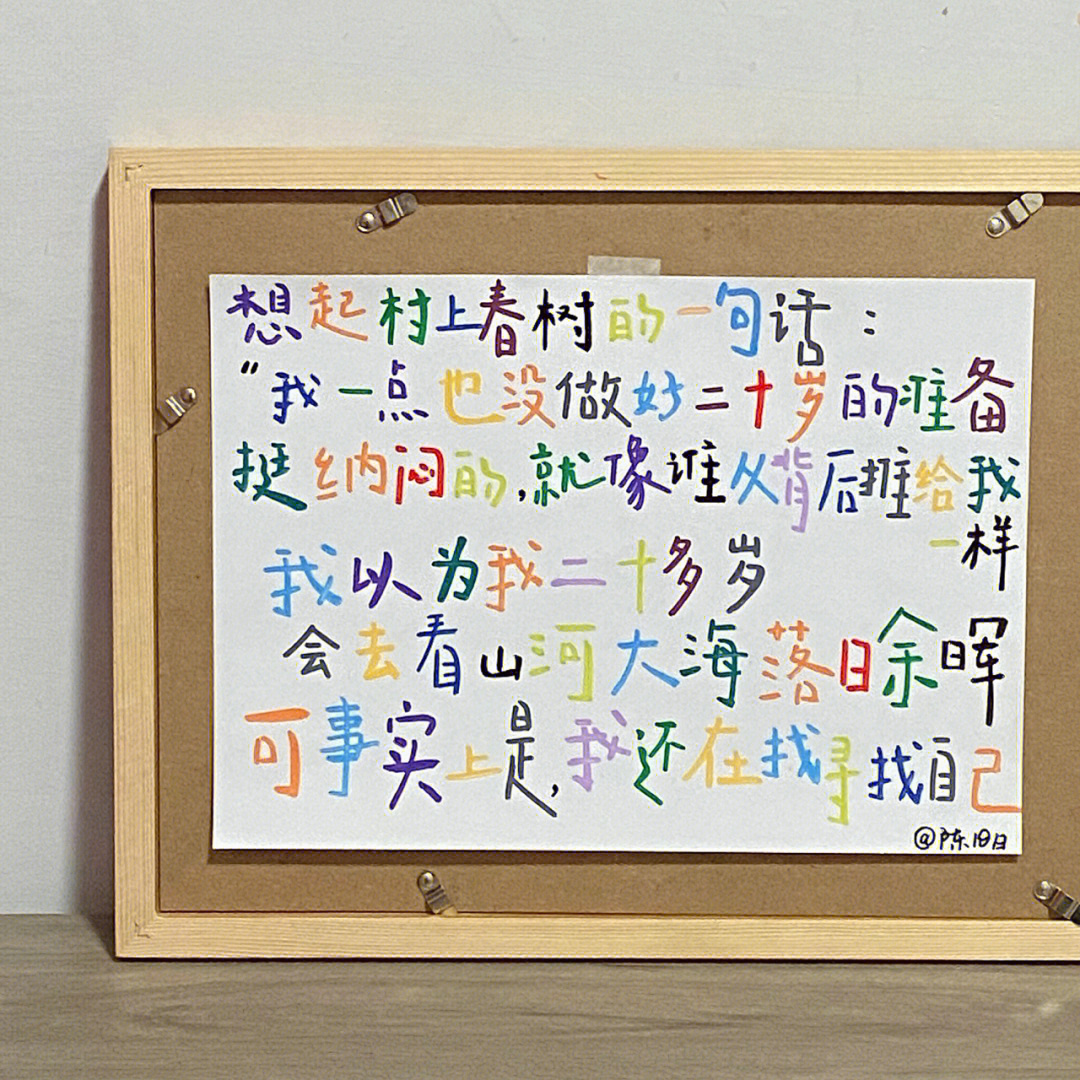 想起村上春树的一句话：
“我一点也没做好二十岁的准备
挺纳闷的,就像谁从背后推给我
一样
我以为我二十多岁
会去看山河大海落日余晖
可事实上是,我还在找寻找自己
@陈旧日